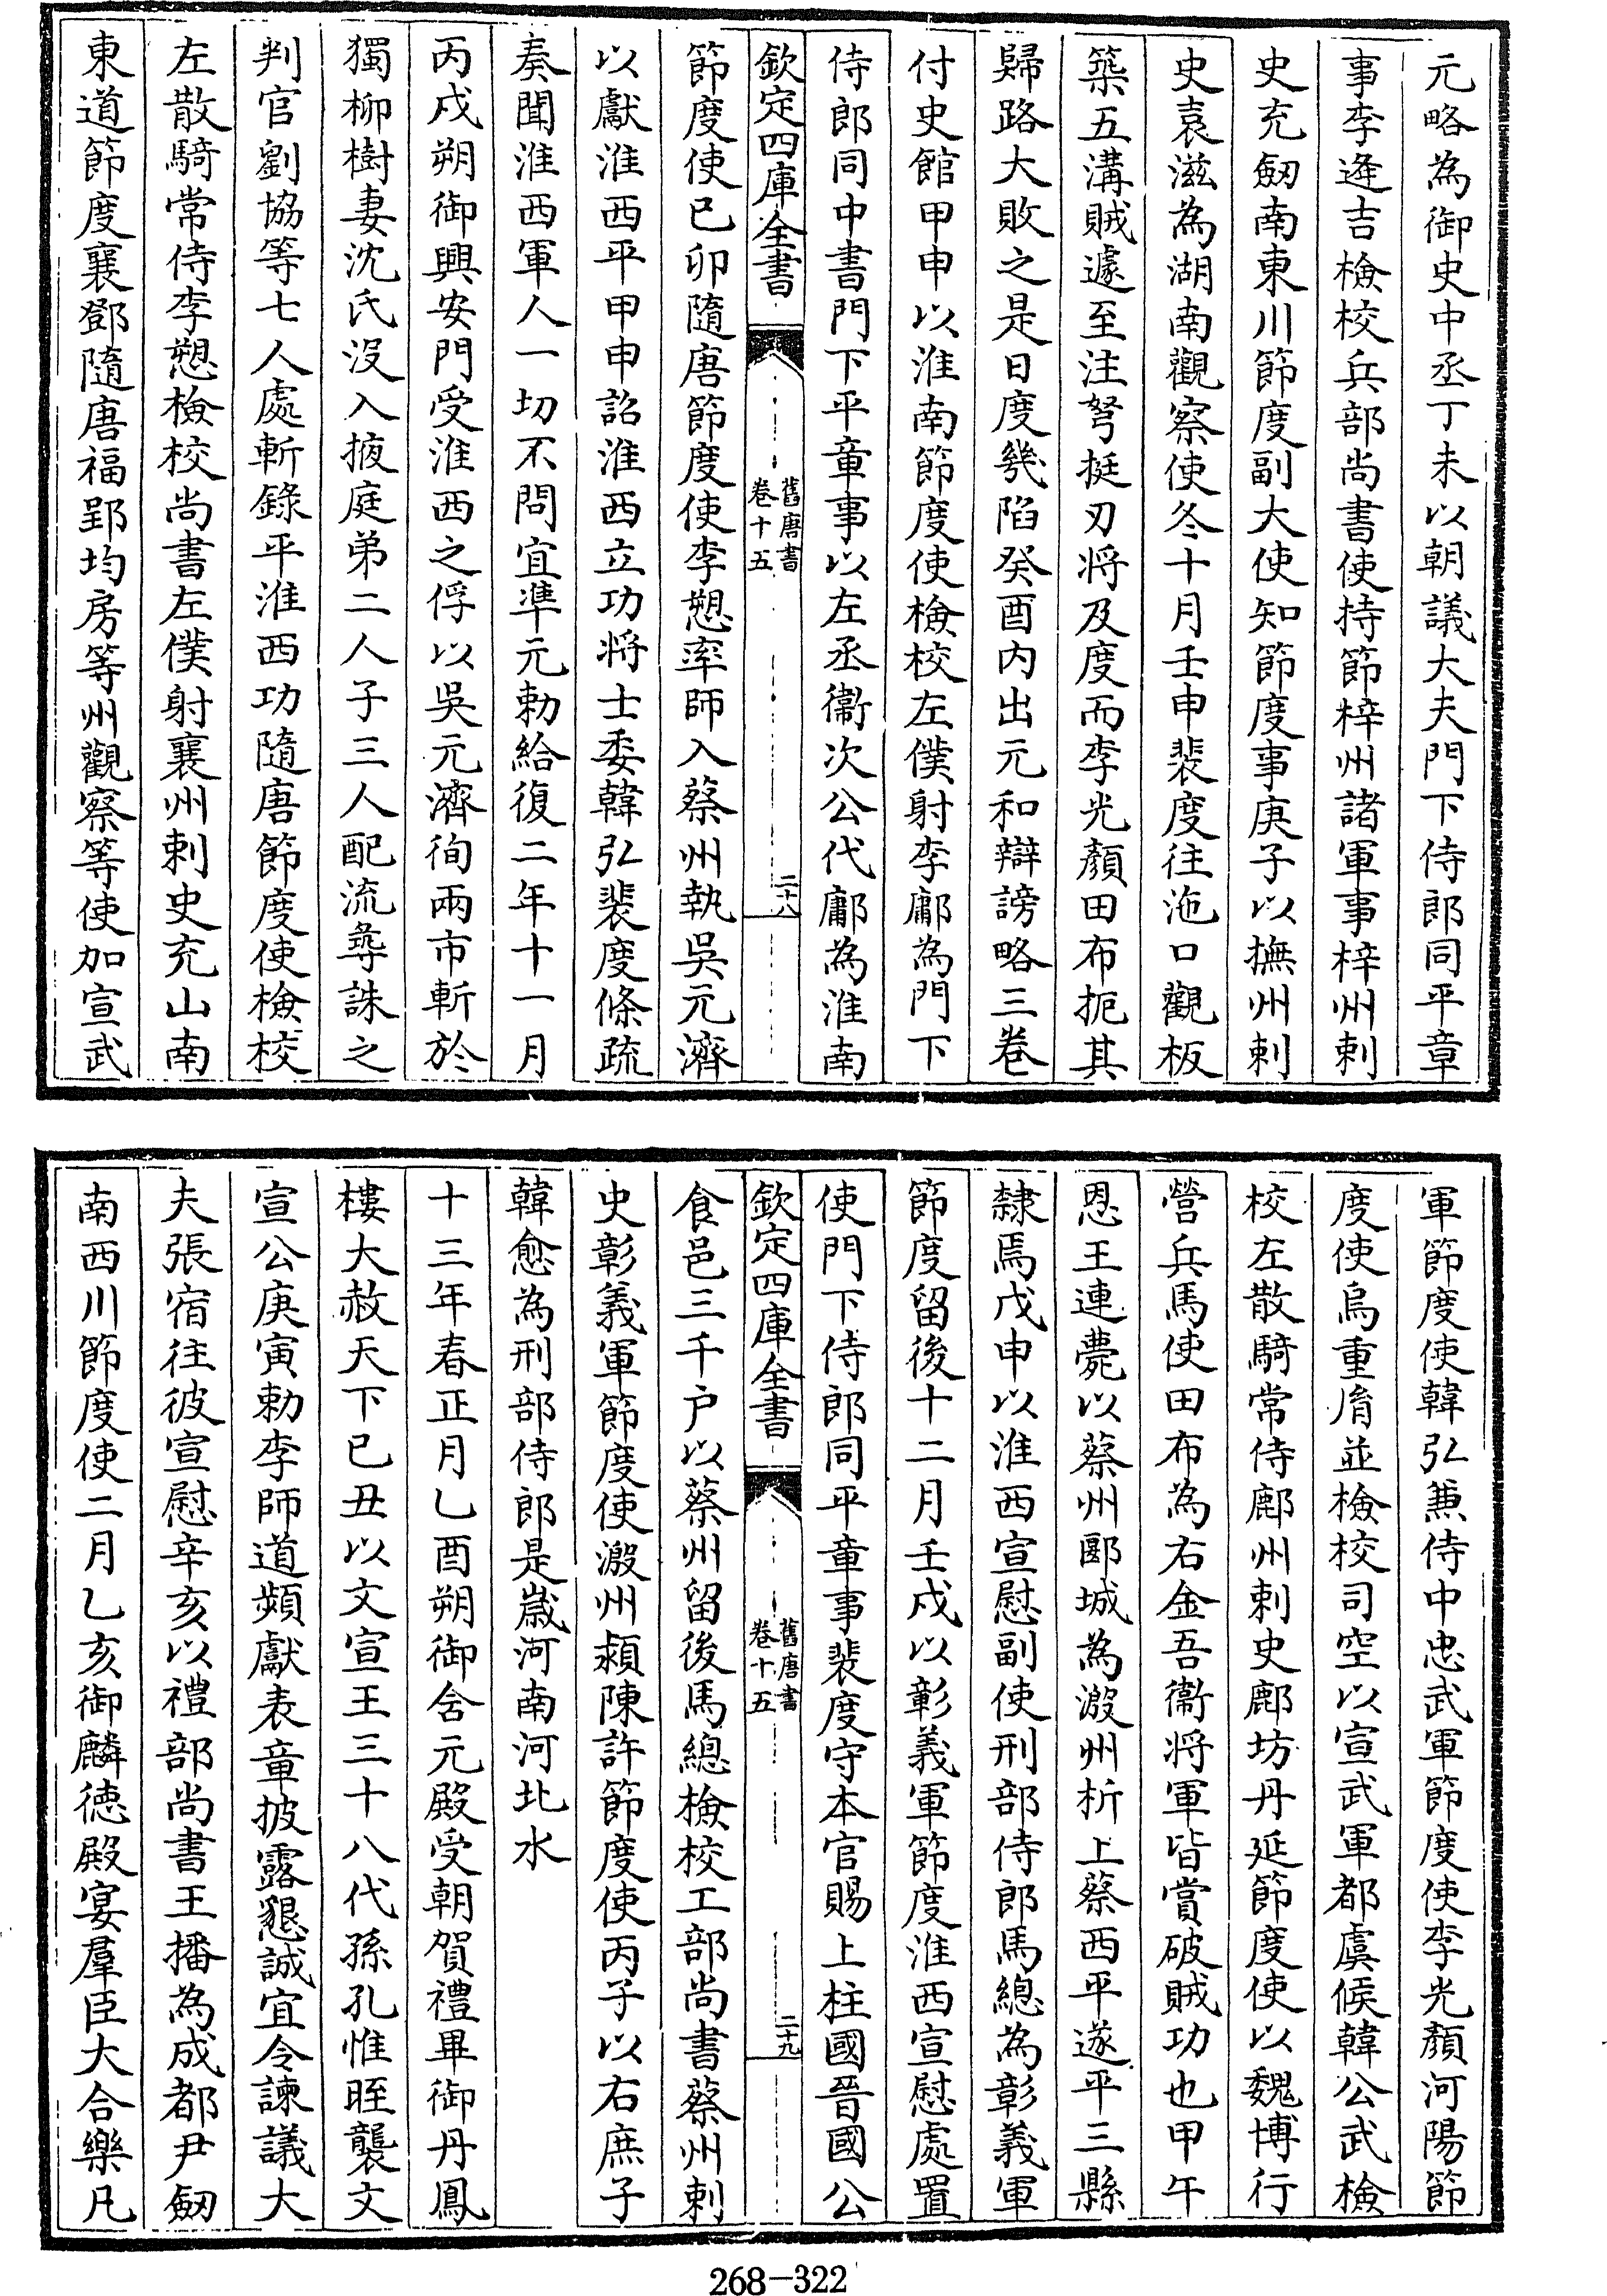 元略為御史中丞丁未以朝議大夫門下侍郎同平章
事李逄吉檢校兵部尚書使持節梓州諸軍事梓州刺
史充劒南東川節度副大使知節度事庚子以撫州刺
史袁滋為湖南觀察使冬十月壬申裴度往沲口觀板
築五溝賊遽至注弩挺刃將及度而李光顔田布扼其
歸路大敗之是日度幾陷癸酉内出元和辯謗略三卷
付史館甲申以淮南節度使檢校左僕射李鄘為門下
侍郎同中書門下平章事以左丞衞次公代鄘為淮南
欽定四庫全書
舊唐書
卷十五
二十八
節度使已卯隨唐節度使李愬率師入蔡州執吳元濟
以獻淮西平甲申詔淮西立功將士委韓弘裴度條疏
奏聞淮西軍人一切不問宜準元勅給復二年十一月
丙戌朔御興安門受淮西之俘以吳元濟徇兩市斬於
獨柳樹妻沈氏沒入掖庭弟二人子三人配流㝷誅之
判官劉協等七人處斬錄平淮西功隨唐節度使檢校
左散騎常侍李愬檢校尚書左僕射襄州刺史充山南
東道節度襄鄧隨唐福郢均房等州觀察等使加宣武
軍節度使韓弘兼侍中忠武軍節度使李光顔河陽節
度使烏重脣並檢校司空以宣武軍都虞候韓公武檢
校左散騎常侍鄜州刺史鄜坊丹延節度使以魏博行
營兵馬使田布為右金吾衞將軍皆賞破賊功也甲午
恩王連薨以蔡州郾城為溵州析上蔡西平遂平三縣
隸焉戊申以淮西宣慰副使刑部侍郎馬總為彰義軍
節度留後十二月壬戌以彰義軍節度淮西宣慰處置
使門下侍郎同平章事裴度守本官賜上柱國晉國公
欽定四庫全書
舊唐書
卷十五
二十九
食邑三千户以蔡州留後馬總檢校工部尚書蔡州刺
史彰義軍節度使溵州潁陳許節度使丙子以右庶子
韓愈為刑部侍郎是嵗河南河北水
十三年春正月乙酉朔御含元殿受朝賀禮畢御丹鳳
樓大赦天下已丑以文宣王三十八代孫孔惟晊襲文
宣公庚寅勅李師道頻獻表章披露懇誠宜令諫議大
夫張宿往彼宣慰辛亥以禮部尚書王播為成都尹劒
南西川節度使二月乙亥御麟徳殿宴羣臣大合樂凡
268-322